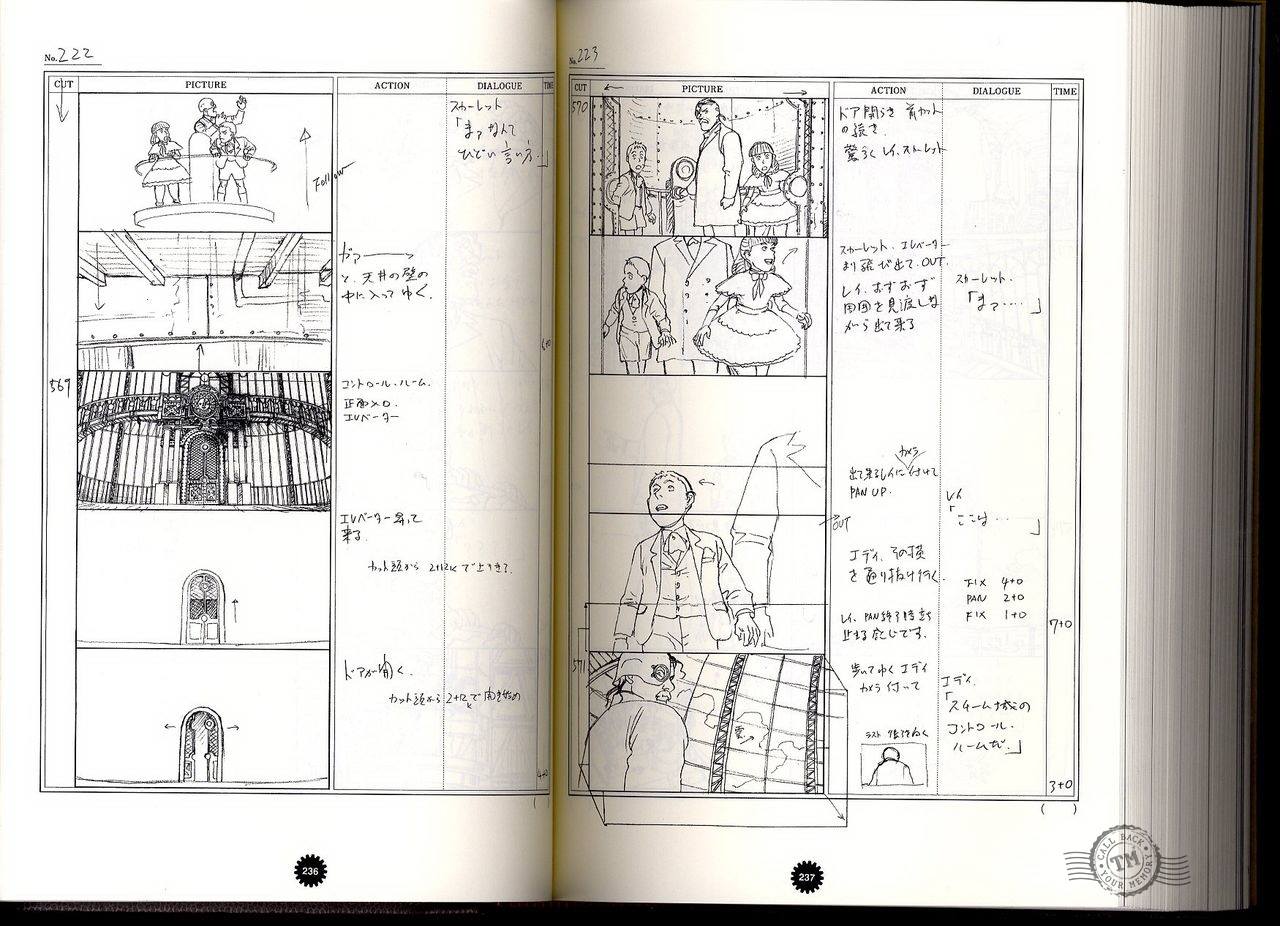 No. 222
CUT
PICTURE
ACTION
DIALOGUE
TIME
スカーレット
「まァ なんて
ひどい 言い方…」
Follow
ガァ――ッ
と、天井の壁の
中に入ってゆく。
6+0
569
コントロール・ルーム。
正面入口。
エレベーター
エレベーター昇って
来る。
カット頭から 2+12kで上りきる。
ドアが開く。
カット頭から 2+12kで開き始め
4+0
( )
236
No. 223
CUT
PICTURE
ACTION
DIALOGUE
TIME
570
ドア開らき 前カット
の続き。
驚ろく レイ、スカーレット
スカーレット、エレベーター
より飛び出て、OUT.
レイ、おずおず
周囲を見渡しな
がら出て来る
スカーレット.
「まァ‥‥」
カメラ
出て来るレイに付けて
PAN UP.
レイ
「ここは…」
OUT
エディ、その横
を通り抜け行く.
FIX 4+0
PAN 2+0
FIX 1+0
レイ、PAN終了時
止まる感じです.
7+0
571
歩いてゆくエディ
カメラ付いて
エディ.
「スチーム城の
コントロール・
ルームだ.」
ラスト
3+0
( )
237
CALL BACK
TM
YOUR MEMORY